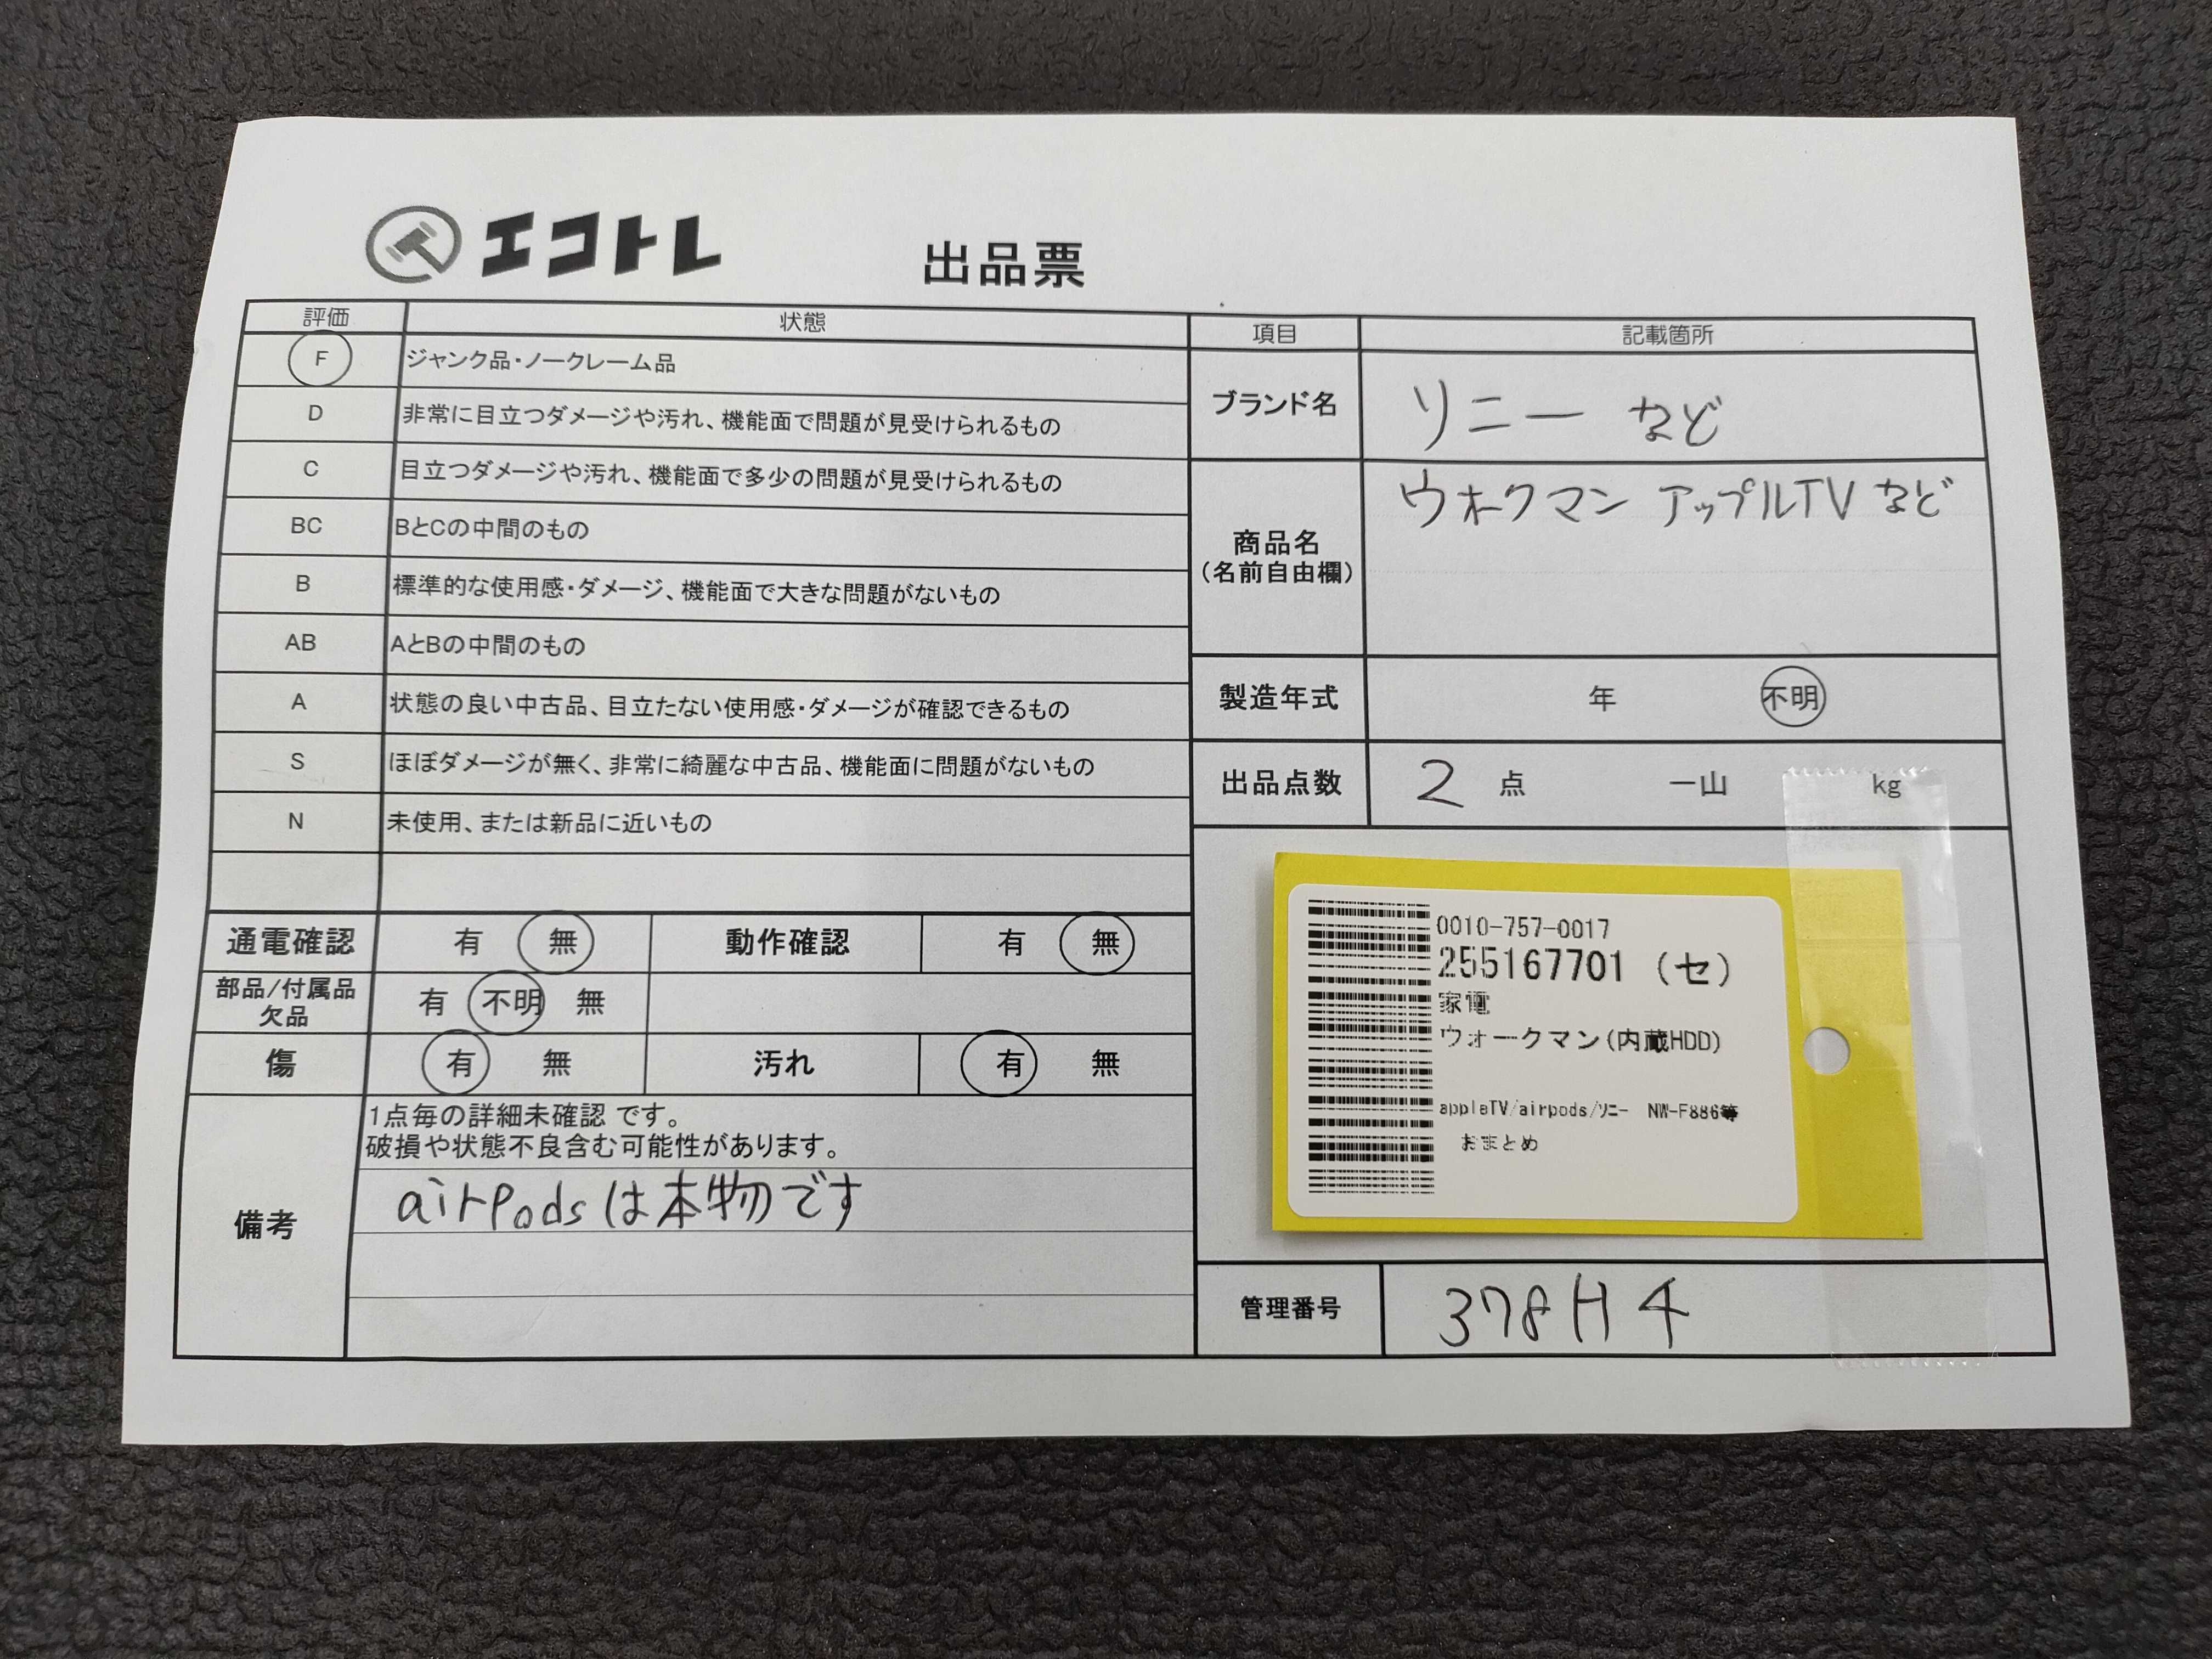 エコトレ
出品票
評価 状態
F ジャンク品・ノークレーム品
D 非常に目立つダメージや汚れ、機能面で問題が見受けられるもの
C 目立つダメージや汚れ、機能面で多少の問題が見受けられるもの
BC BとCの中間のもの
B 標準的な使用感・ダメージ、機能面で大きな問題がないもの
AB AとBの中間のもの
A 状態の良い中古品、目立たない使用感・ダメージが確認できるもの
S ほぼダメージが無く、非常に綺麗な中古品、機能面に問題がないもの
N 未使用、または新品に近いもの
通電確認 有 無 動作確認 有 無
部品/付属品
欠品 有 不明 無
傷 有 無 汚れ 有 無
備考
1点毎の詳細未確認 です。
破損や状態不良含む可能性があります。
airpodsは本物です
項目 記載箇所
ブランド名 ソニー など
商品名
(名前自由欄)
ウォークマン アップルTV など
製造年式 年 不明
出品点数 2 点 一山 kg
0010-757-0017
255167701 (セ)
家電
ウォークマン(内蔵HDD)
appleTV/airpods/ソニー NW-F886等
おまとめ
管理番号 378H4